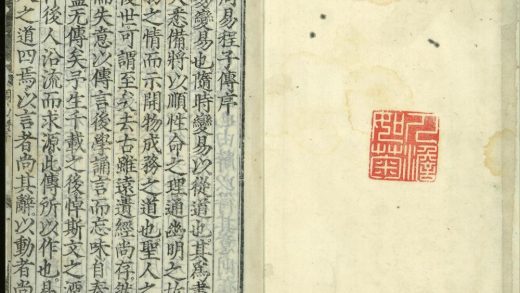 周易程子傳序
易變易也隨時變易以從道也其爲書
大悉備將以順性命之理通幽明之故
物之情而示開物成務之道也聖人之
後世可謂至矣去古雖遠遺經尚存然
失意以傳言後學誦言而忘味自秦
蓋无傳矣予生千載之後悼斯文之湮
後人沿流而求源此傳所以作也易
之道四焉以言者尚其辭以動者尚